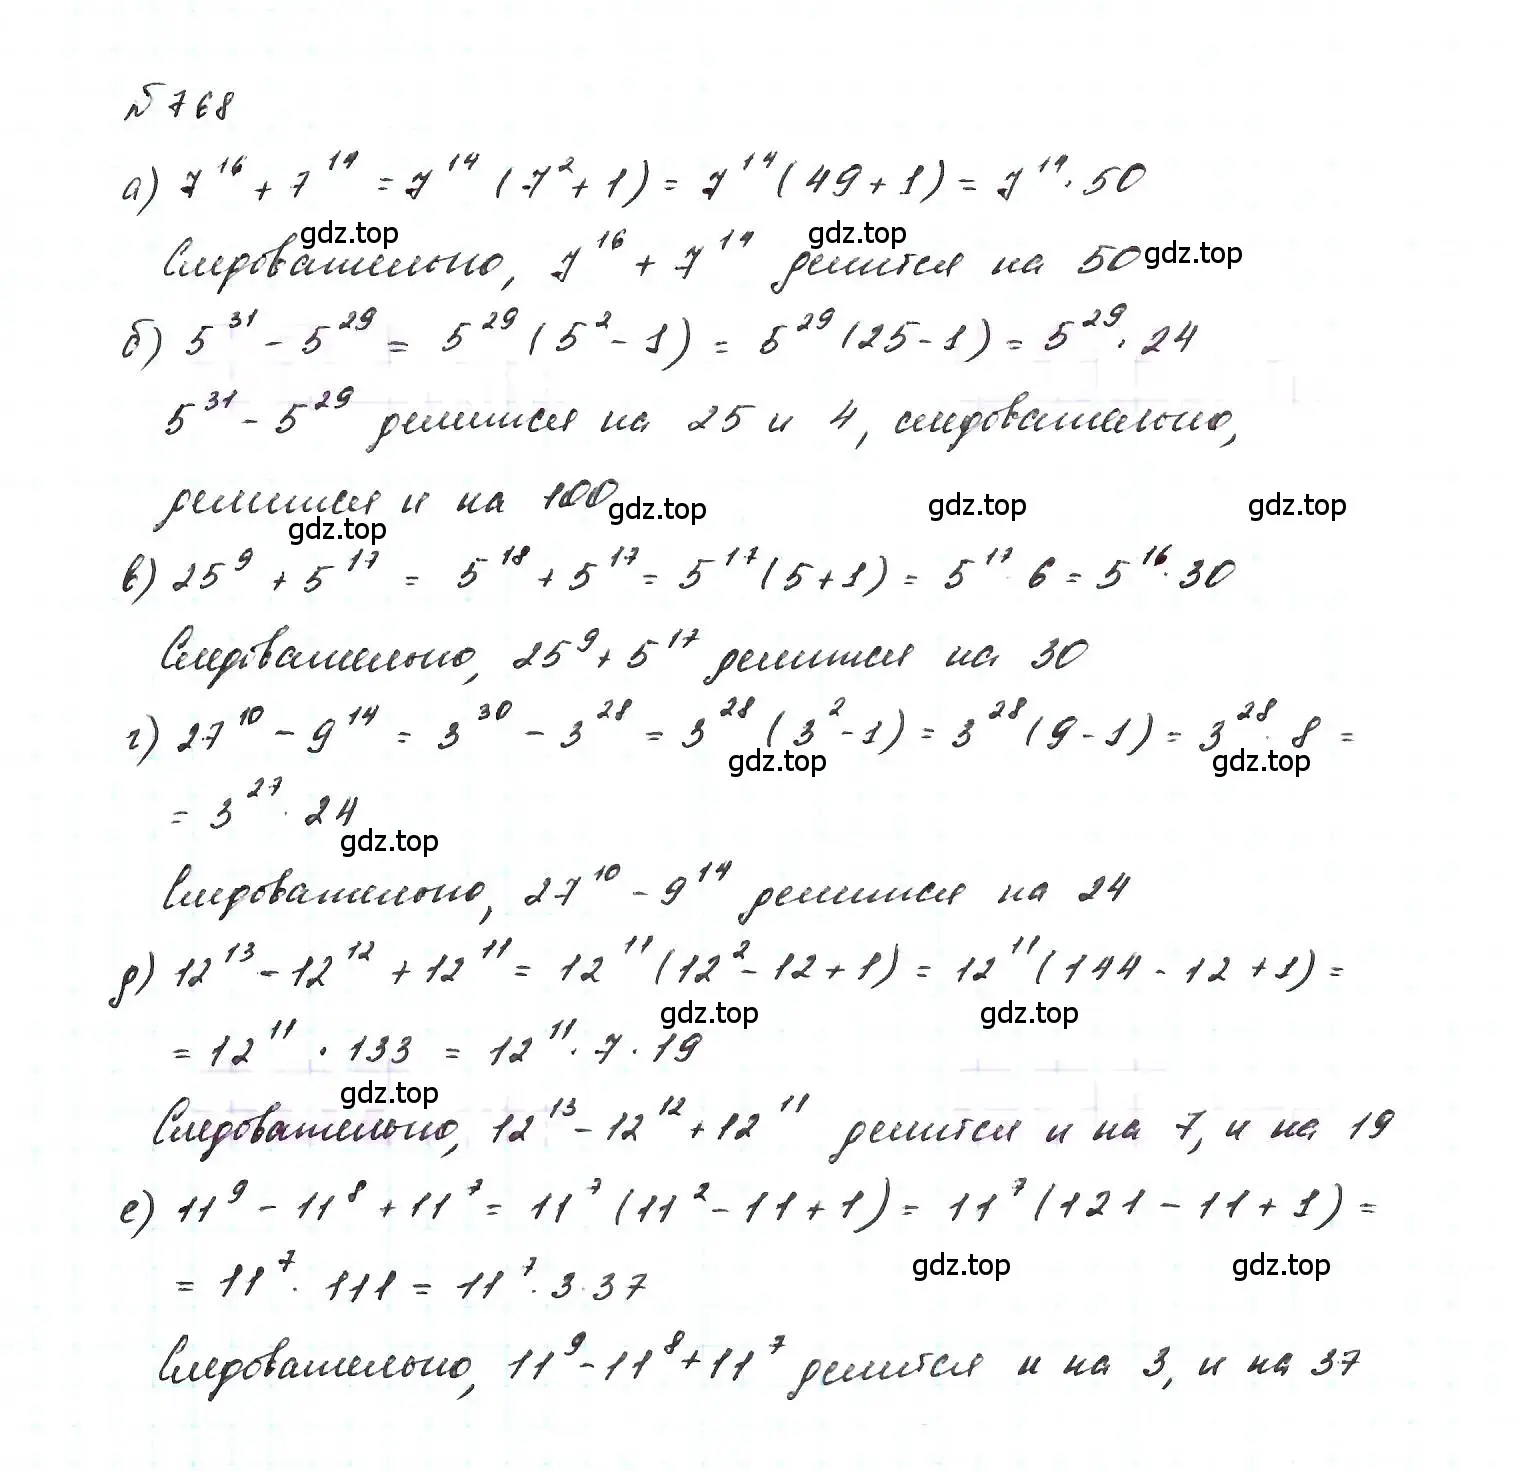 № 768
а) 7^16 + 7^14 = 7^14 (7^2 + 1) = 7^14 (49 + 1) = 7^14 · 50
gdz.top gdz.top
Следовательно, 7^16 + 7^14 делится на 50 gdz.top
б) 5^31 - 5^29 = 5^29 (5^2 - 1) = 5^29 (25 - 1) = 5^29 · 24
5^31 - 5^29 делится на 25 и 4, следовательно,
делится и на 100 gdz.top gdz.top gdz.top
gdz.top
в) 25^9 + 5^17 = 5^18 + 5^17 = 5^17 (5 + 1) = 5^17 · 6 = 5^16 · 30
Следовательно, 25^9 + 5^17 делится на 30
г) 27^10 - 9^14 = 3^30 - 3^28 = 3^28 (3^2 - 1) = 3^28 (9 - 1) = 3^28 · 8 =
gdz.top gdz.top
= 3^27 · 24
gdz.top
Следовательно, 27^10 - 9^14 делится на 24
д) 12^13 - 12^12 + 12^11 = 12^11 (12^2 - 12 + 1) = 12^11 (144 - 12 + 1) =
gdz.top gdz.top
= 12^11 · 133 = 12^11 · 7 · 19
gdz.top
Следовательно, 12^13 - 12^12 + 12^11 делится и на 7, и на 19
е) 11^9 - 11^8 + 11^7 = 11^7 (11^2 - 11 + 1) = 11^7 (121 - 11 + 1) =
gdz.top gdz.top
= 11^7 · 111 = 11^7 · 3 · 37
Следовательно, 11^9 - 11^8 + 11^7 делится и на 3, и на 37